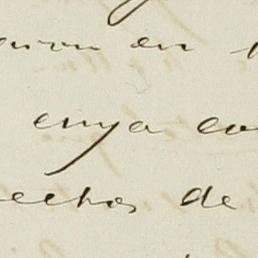 en
cuya co
echos de